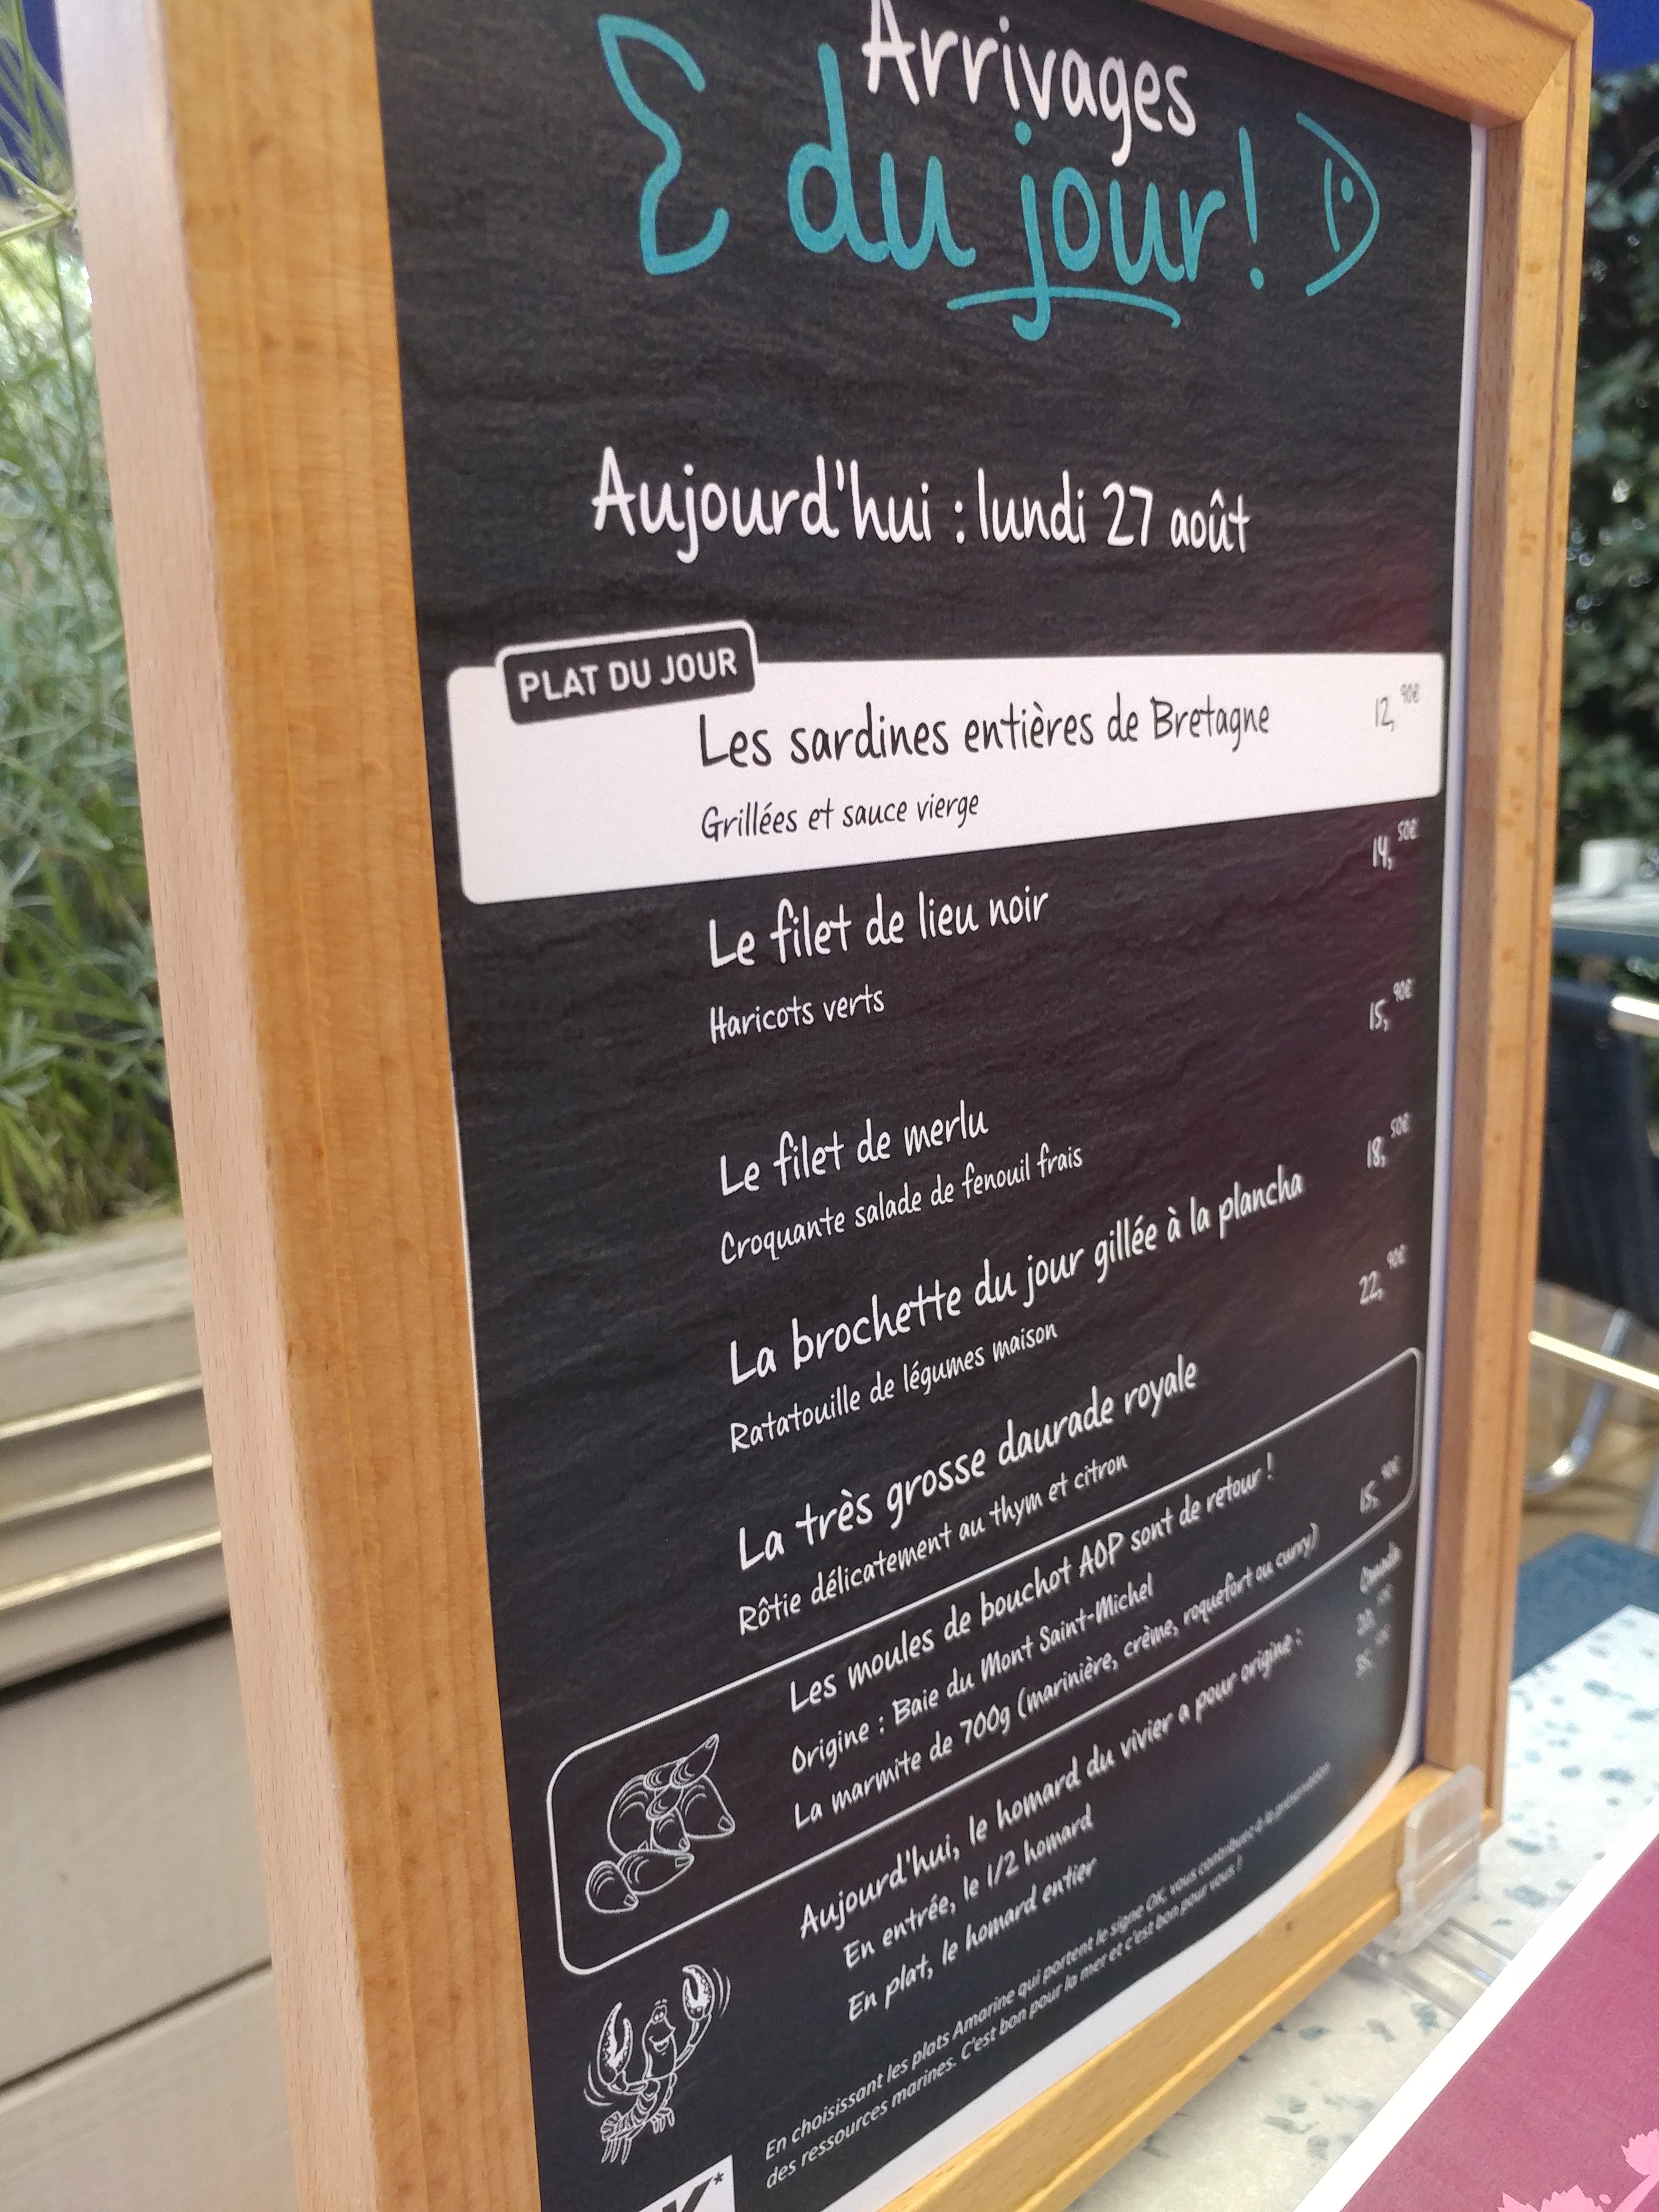 Arrivages
du jour!
Aujourd'hui : lundi 27 août
PLAT DU JOUR
Les sardines entières de Bretagne 12,90€
Grillées et sauce vierge
Le filet de lieu noir 14,50€
Haricots verts
Le filet de merlu 15,90€
Croquante salade de fenouil frais
La brochette du jour gillée à la plancha 18,50€
Ratatouille de légumes maison
La très grosse daurade royale 22,90€
Rôtie délicatement au thym et citron
Les moules de bouchot AOP sont de retour !
Origine : Baie du Mont Saint-Michel
La marmite de 700g (marinière, crème, roquefort ou curry) 15,90€
Aujourd'hui, le homard du vivier a pour origine : Canada
En entrée, le 1/2 homard
En plat, le homard entier
En choisissant les plats Amarine qui portent le signe OK, vous contribuez à la préservation
des ressources marines. C'est bon pour la mer et c'est bon pour vous !